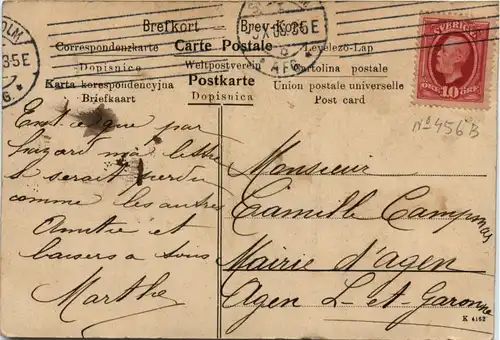 Brefkort Brev-Kort
Correspondenzkarte Carte Postale Levelezo-Lap
Dopisnice Weltpostverein Cartolina postale
Karta korespondencyjna Postkarte Union postale universelle
Briefkaart Dopisnica Post card
SVERIGE
10 ÖRE
No 456 B
Est ce que par
hazard ma lettre
se serait perdu
comme les autres
Amitie et
baisers a tous
Marthe
Monsieur
Camille Campmas
Mairie d'agen
Agen L-et-Garonne
K 4162